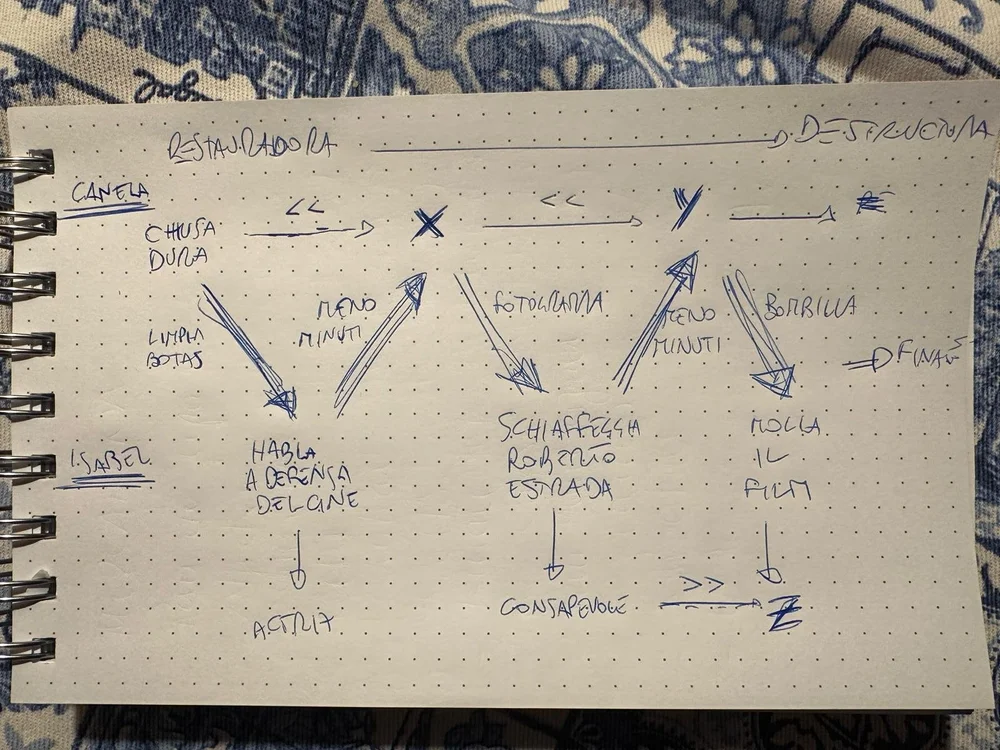 RESTAURADORA
DESTRUCTORA
CANELA
<<
<<
CHIUSA
DURA
X
Y
LIMPIA
BOTAS
MENO
MINUTI
FOTOGRAFIA
MENO
MINUTI
BOMBILLA
FINALE
ISABEL
HABLA
A DEFENSA
DEL CINE
SCHIAFFEGGIA
ROBERTO
ESTRADA
MOLLA
IL
FILM
ACTRIZ
CONSAPEVOLE
>>
Z